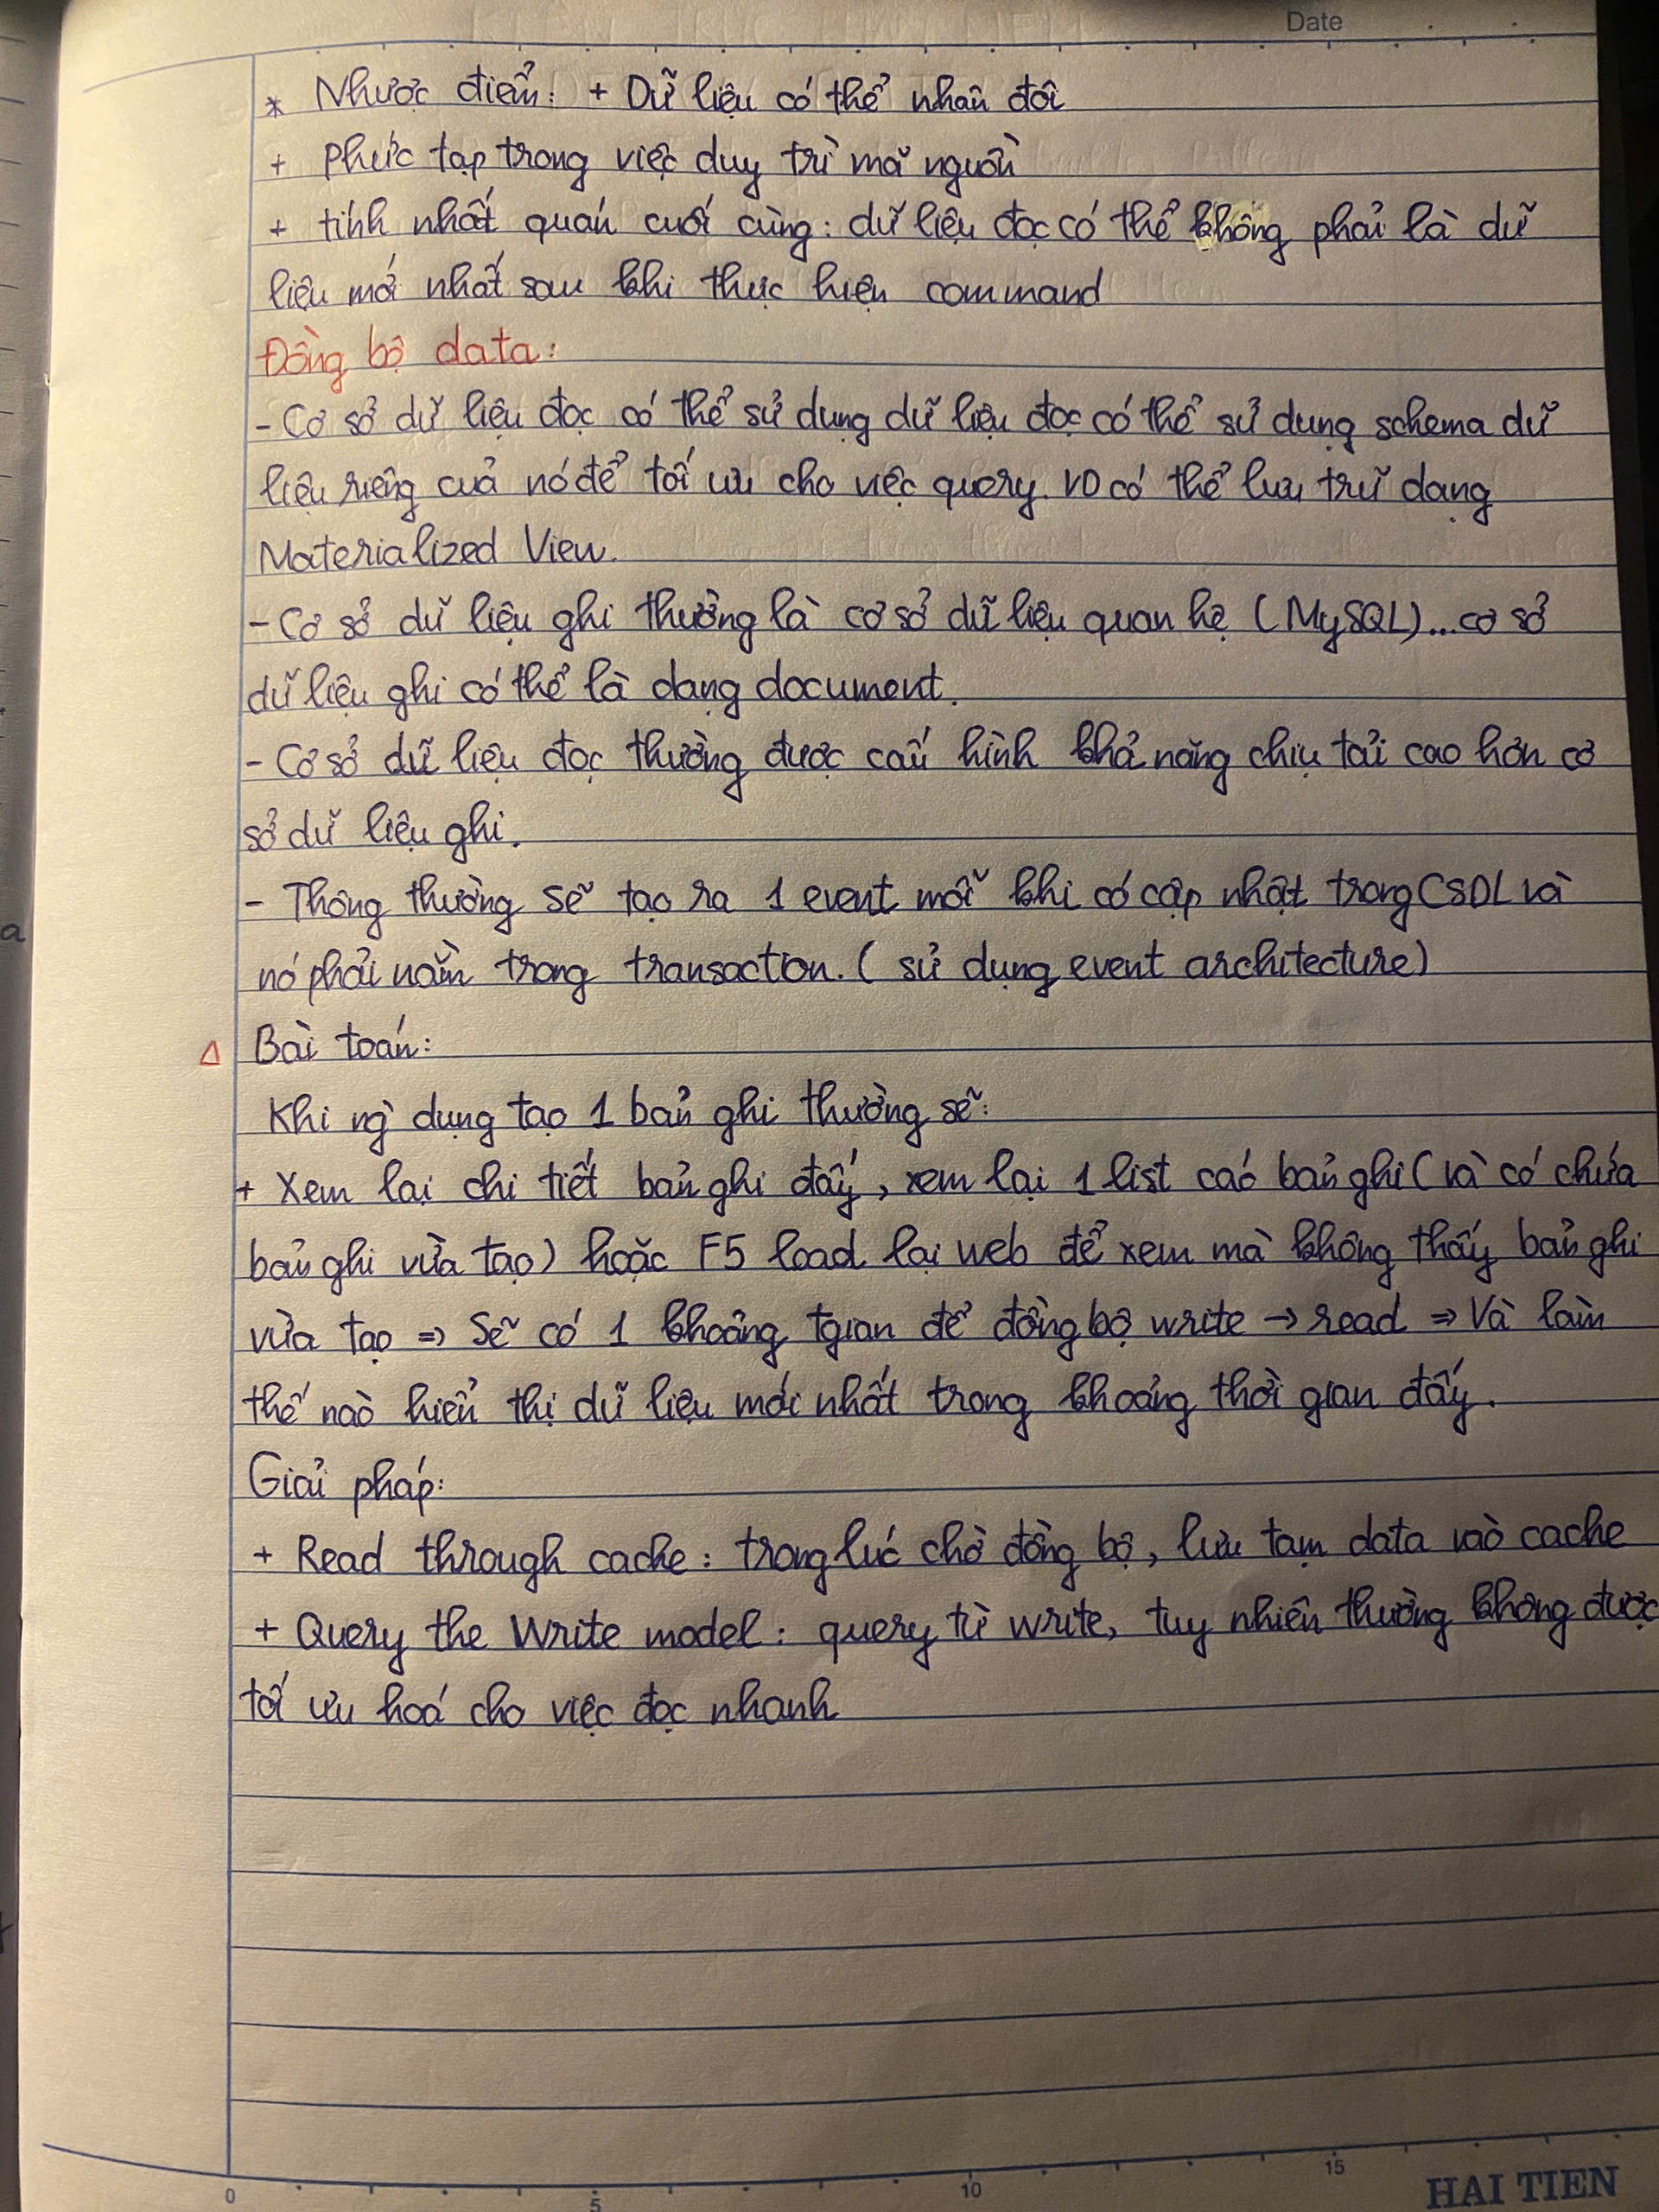 Date
* Nhược điểm: + Dữ liệu có thể nhân đôi
+ phức tạp trong việc duy trì mã nguồn
+ tính nhất quán cuối cùng: dữ liệu đọc có thể không phải là dữ
liệu mới nhất sau khi thực hiện command
Đồng bộ data:
- Cơ sở dữ liệu đọc có thể sử dụng dữ liệu đọc có thể sử dụng schema dữ
liệu riêng của nó để tối ưu cho việc query. VD có thể lưu trữ dạng
Materialized View.
- Cơ sở dữ liệu ghi thường là cơ sở dữ liệu quan hệ (MySQL)... cơ sở
dữ liệu ghi có thể là dạng document.
- Cơ sở dữ liệu đọc thường được cấu hình khả năng chịu tải cao hơn cơ
sở dữ liệu ghi.
- Thông thường sẽ tạo ra 1 event mỗi khi có cập nhật trong CSDL và
nó phải nằm trong transaction. ( sử dụng event architecture)
Δ Bài toán:
Khi ng` dụng tạo 1 bản ghi thường sẽ:
+ Xem lại chi tiết bản ghi đấy, xem lại 1 list các bản ghi ( và có chứa
bản ghi vừa tạo) hoặc F5 load lại web để xem mà không thấy bản ghi
vừa tạo ⇒ Sẽ có 1 khoảng tgian để đồng bộ write → read ⇒ Và làm
thế nào hiển thị dữ liệu mới nhất trong khoảng thời gian đấy.
Giải pháp:
+ Read through cache: trong lúc chờ đồng bộ, lưu tạm data vào cache
+ Query the Write model: query từ write, tuy nhiên thường không được
tối ưu hoá cho việc đọc nhanh
0 5 10 15
HAI TIEN